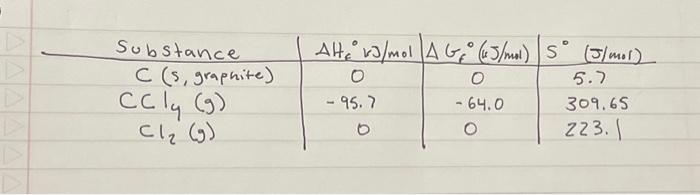 Substance ΔHf° kJ/mol ΔGf° (kJ/mol) S° (J/mol)
C (s, graphite) 0 0 5.7
CCl4 (g) -95.7 -64.0 309.65
Cl2 (g) 0 0 223.1